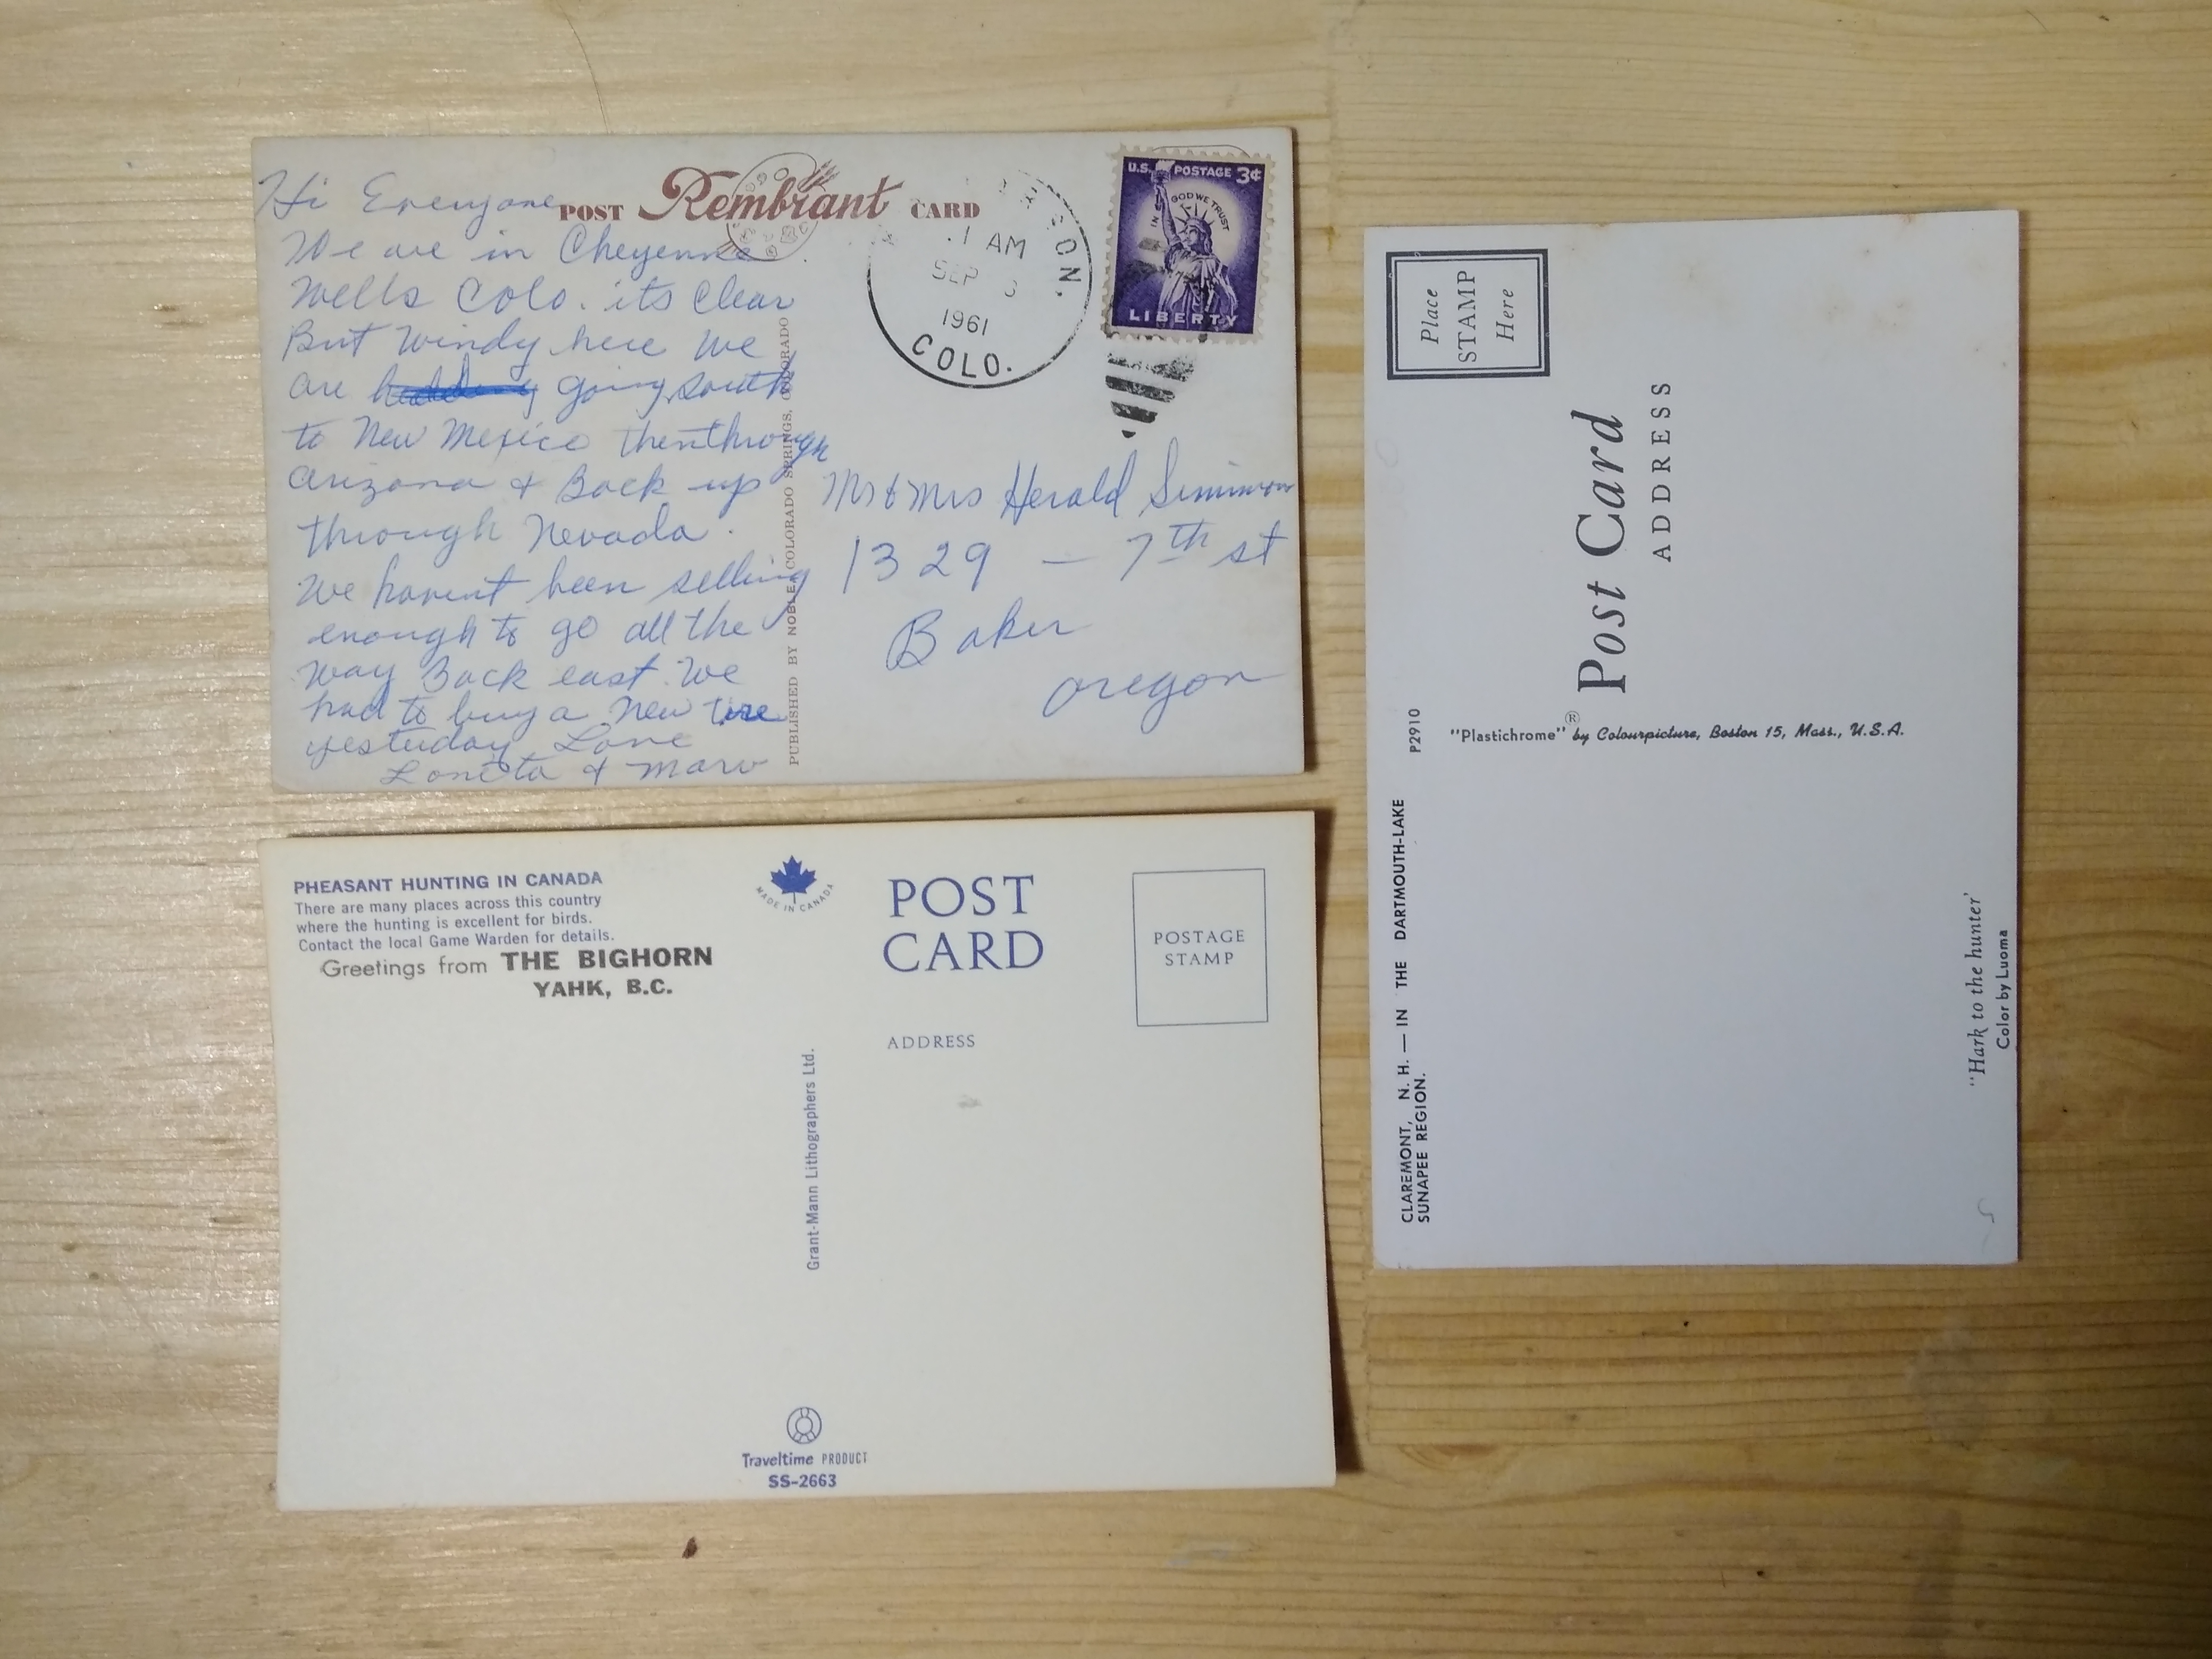 Hi Everyone
We are in Cheyenne
Wells Colo. its Clear
But Windy here We
are going south
to New Mexico then through
Arizona & Back up
through Nevada.
We havent been selling
enough to go all the
way Back east. We
had to buy a new tire
yesterday. Love
Loneta & Marv
POST Rembrant CARD
PUBLISHED BY NOBLE, COLORADO SPRINGS, COLORADO
AM
SEP 3
1961
COLO.
U.S. POSTAGE 3¢
IN GOD WE TRUST
LIBERTY
Mr & Mrs Herald Simmon
1329 — 7th st
Baker
Oregon
PHEASANT HUNTING IN CANADA
There are many places across this country
where the hunting is excellent for birds.
Contact the local Game Warden for details.
Greetings from THE BIGHORN
YAHK, B.C.
MADE IN CANADA
POST
CARD
POSTAGE
STAMP
ADDRESS
Grant-Mann Lithographers Ltd.
Traveltime PRODUCT
SS-2663
CLAREMONT, N. H. — IN THE DARTMOUTH-LAKE
SUNAPEE REGION.
P2910
"Plastichrome" ® by Colourpicture, Boston 15, Mass., U.S.A.
Place
STAMP
Here
Post Card
ADDRESS
"Hark to the hunter"
Color by Luoma